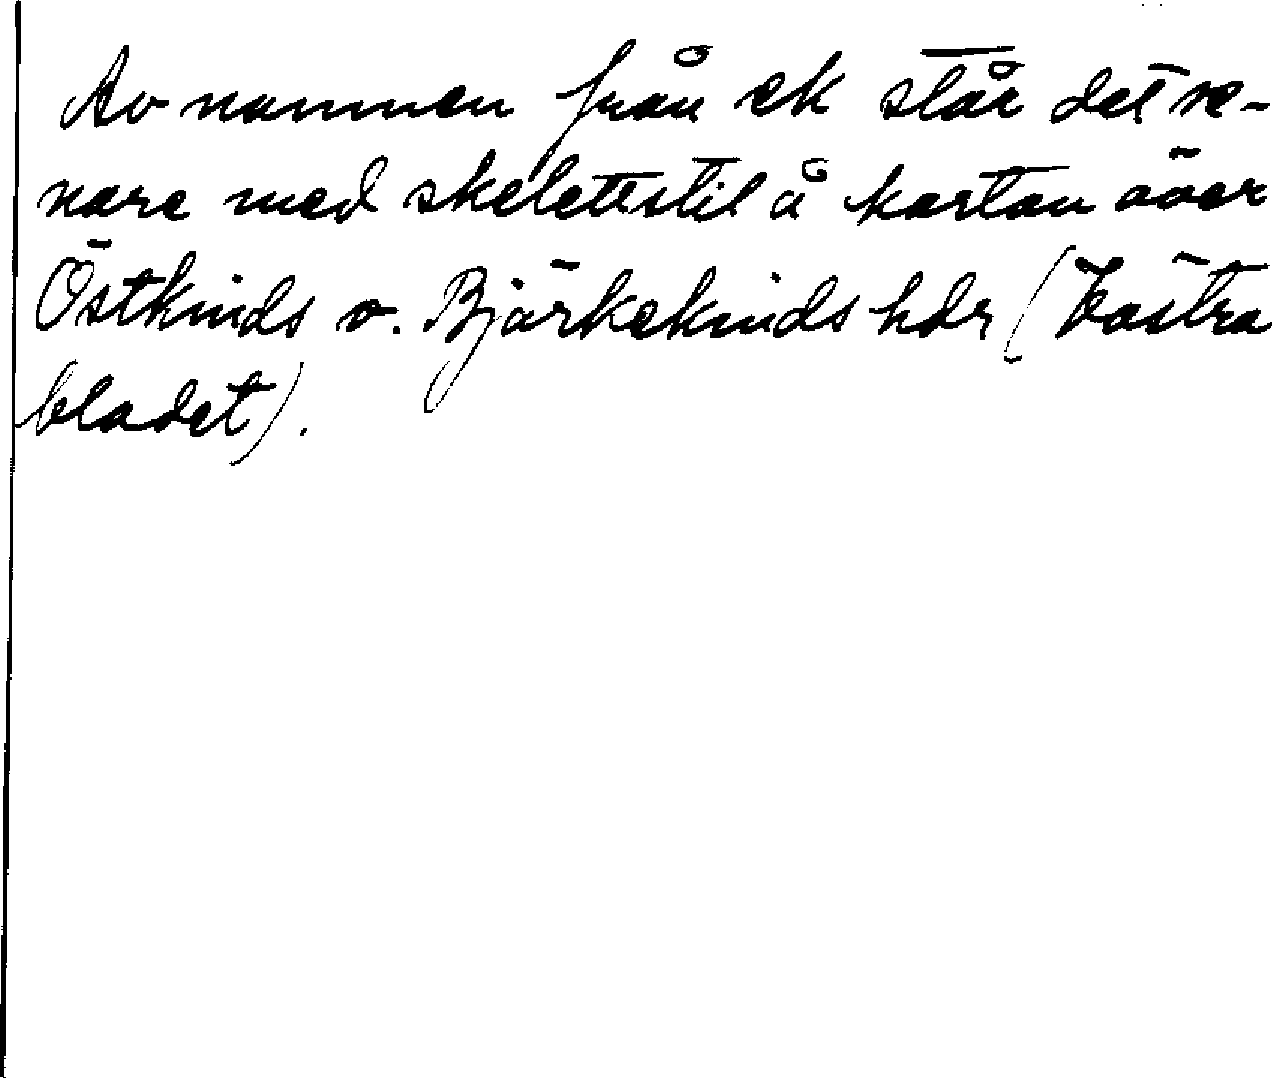 Av namnen från ek står det se-
nare med skelettstil å kartan över
Östkinds o. Björkekinds hdr (Västra
bladet).